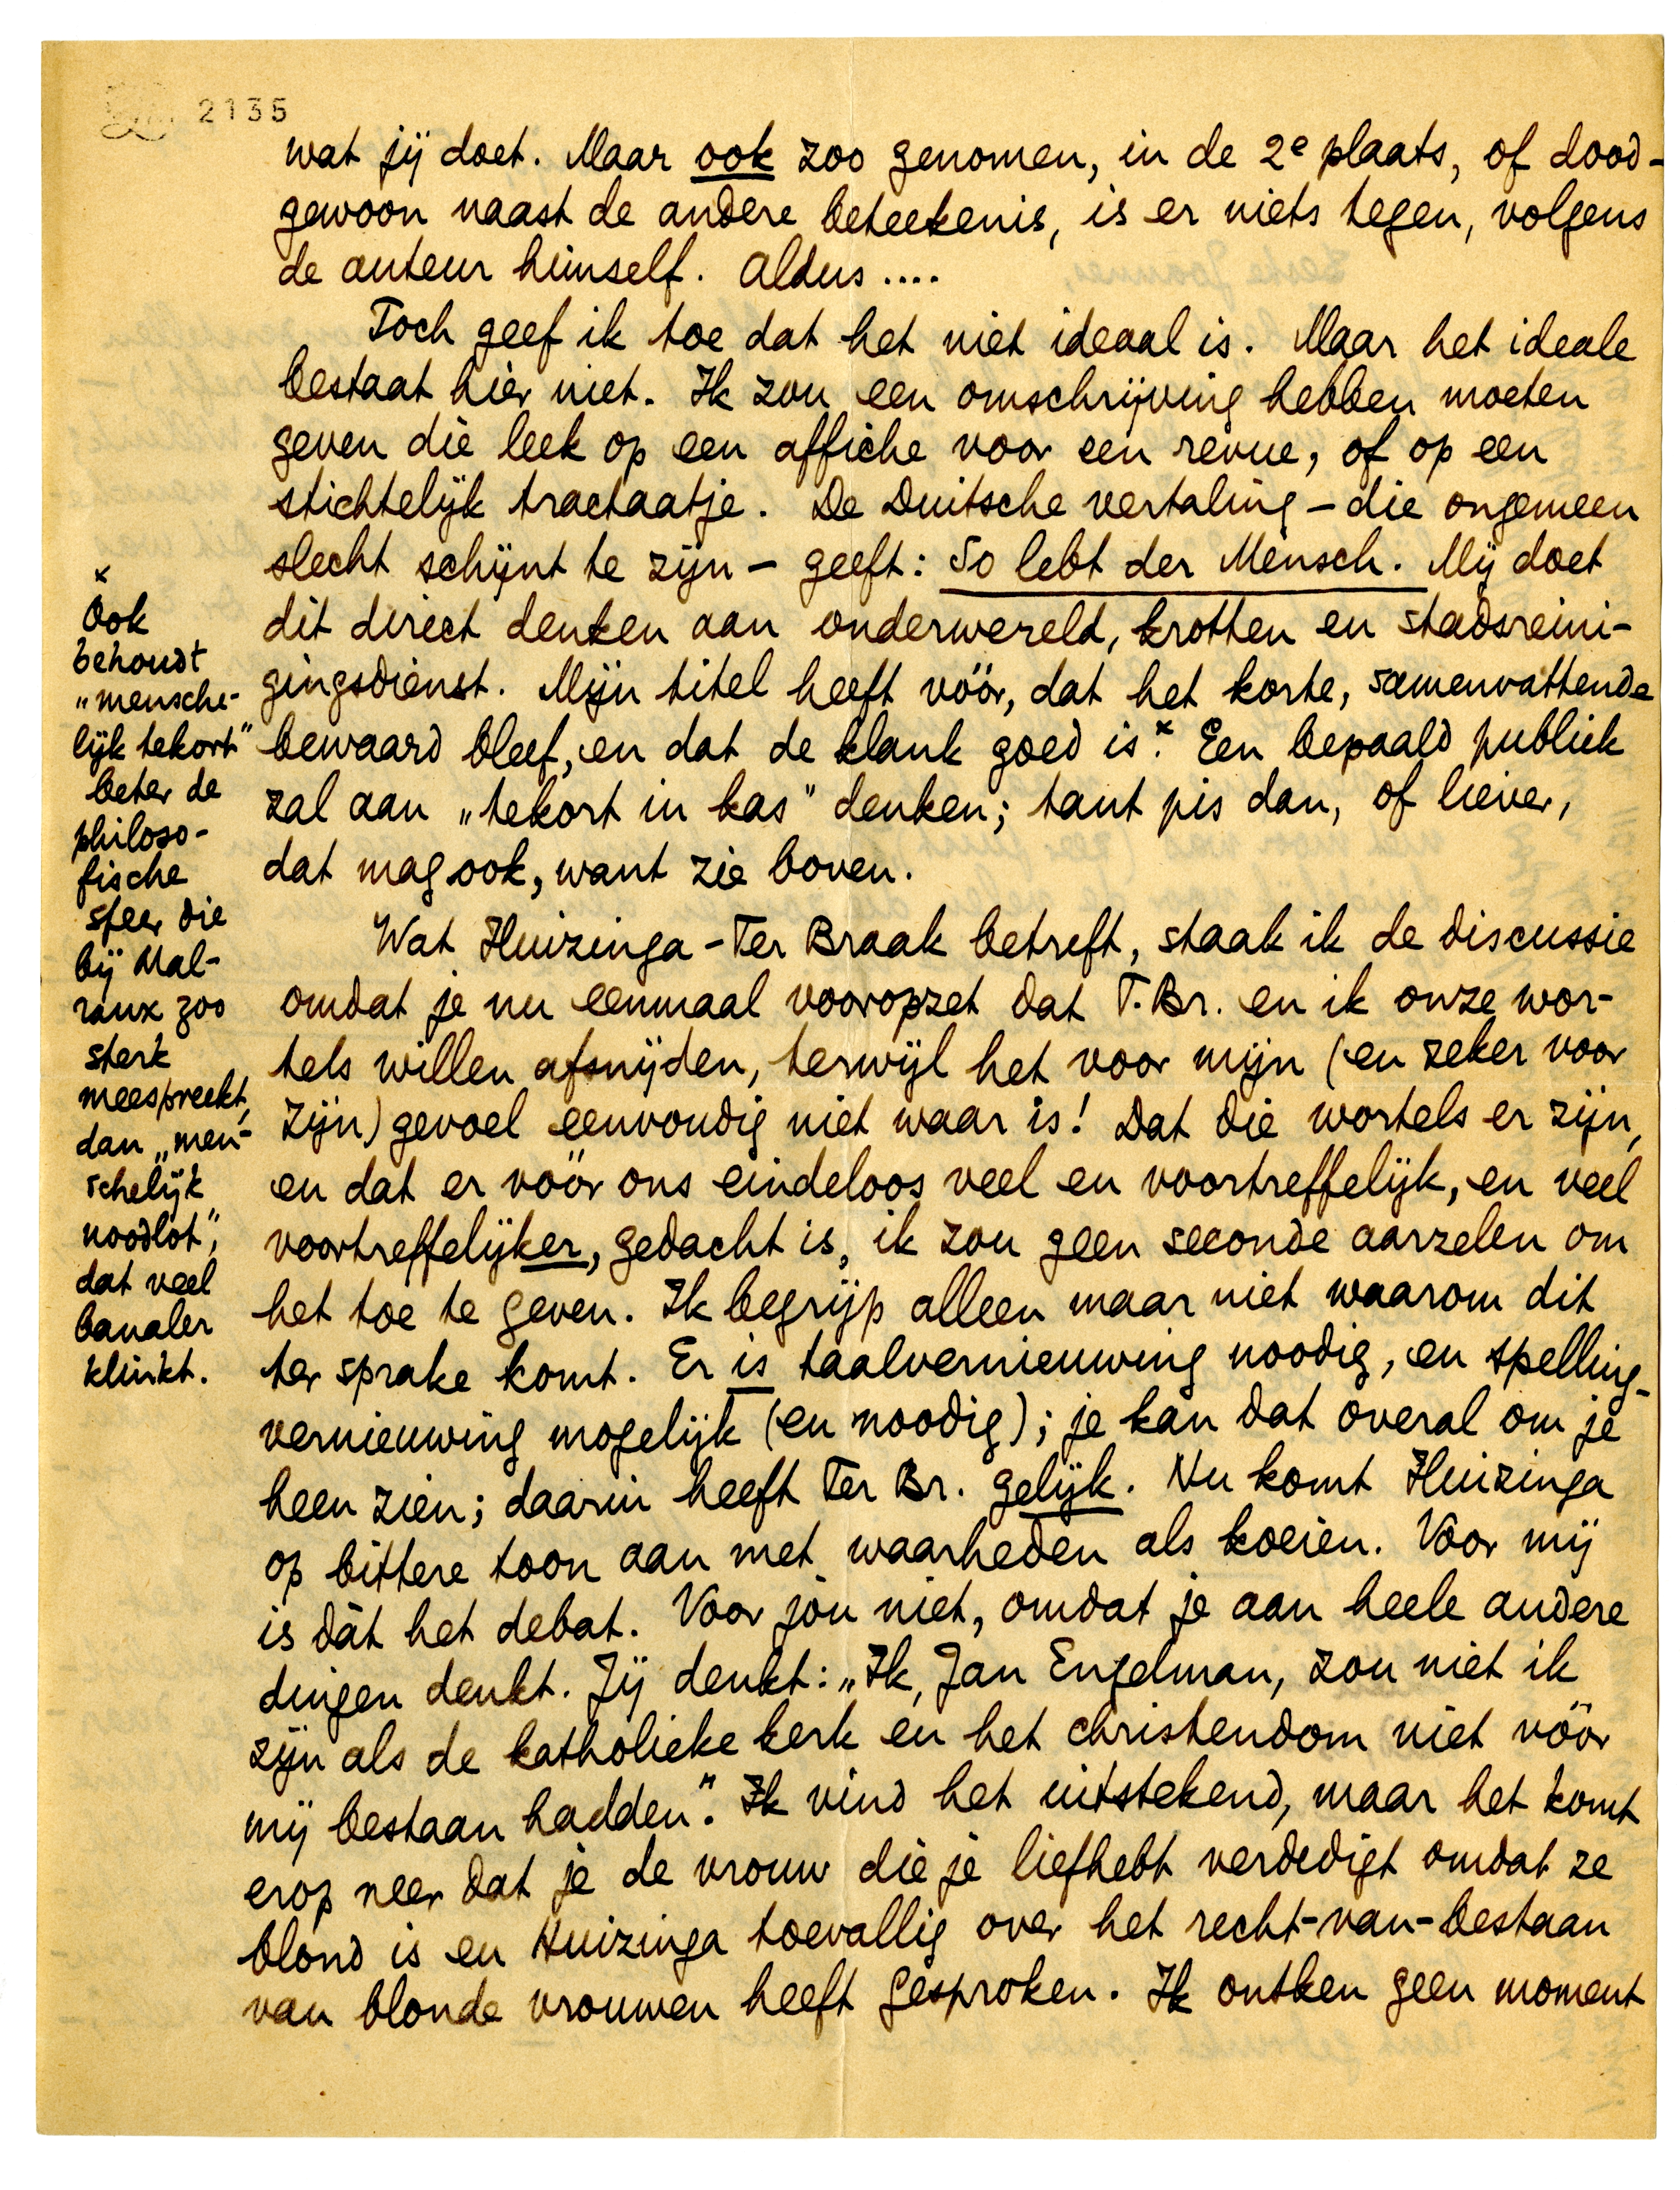 2135
wat jij doet. Maar ook zoo genomen, in de 2e plaats, of dood-
gewoon naast de andere beteekenis, is er niets tegen, volgens
de auteur himself. Aldus ....
Toch geef ik toe dat het niet ideaal is. Maar het ideale
bestaat hier niet. Ik zou een omschrijving hebben moeten
geven die leek op een affiche voor een revue, of op een
stichtelijk tractaatje. De Duitsche vertaling – die ongemeen
slecht schijnt te zijn – geeft: So lebt der Mensch. Mij doet
dit direct denken aan onderwereld, krotten en stadsreini-
gingsdienst. Mijn titel heeft vóór, dat het korte, samenvattende
bewaard bleef, en dat de klank goed is.x Een bepaald publiek
zal aan „tekort in kas” denken; tant pis dan, of liever,
dat mag ook, want zie boven.
Wat Huizinga - Ter Braak betreft, staak ik de discussie
omdat je nu eenmaal vooropzet dat T. Br. en ik onze wor-
tels willen afsnijden, terwijl het voor mijn (en zeker voor
zijn) gevoel eenvoudig niet waar is! Dat die wortels er zijn,
en dat er vóór ons eindeloos veel en voortreffelijk, en veel
voortreffelijker, gedacht is, ik zou geen seconde aarzelen om
het toe te geven. Ik begrijp alleen maar niet waarom dit
ter sprake komt. Er is taalvernieuwing noodig, en spelling-
vernieuwing mogelijk (en noodig); je kan dat overal om je
heen zien; daarin heeft Ter Br. gelijk. Nu komt Huizinga
op bittere toon aan met waarheden als koeien. Voor mij
is dàt het debat. Voor jóu niet, omdat je aan heele andere
dingen denkt. Jij denkt: „Ik, Jan Engelman, zou niet ik
zijn als de katholieke kerk en het christendom niet vóór
mij bestaan hadden”. Ik vind het uitstekend, maar het komt
erop neer dat je de vrouw die je liefhebt verdedigt omdat ze
blond is en Huizinga toevallig over het recht-van-bestaan
van blonde vrouwen heeft gesproken. Ik ontken geen moment
x
Ook
behoudt
„mensche-
lijk tekort”
beter de
philoso-
fische
sfeer die
bij Mal-
raux zoo
sterk
meespreekt,
dan „men-
schelijk
noodlot”,
dat veel
banaler
klinkt.